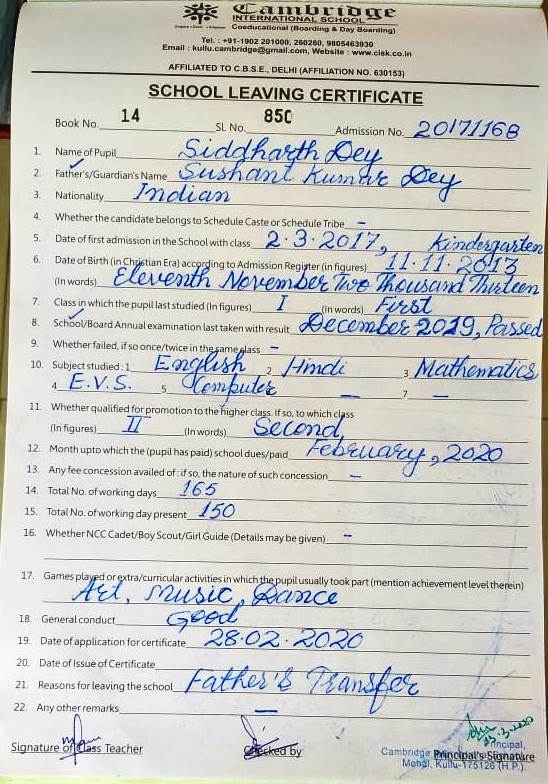 Cambridge
INTERNATIONAL SCHOOL
Coeducational (Boarding & Day Boarding)
Tel. : +91-1902 201000, 260260, 9805463930
Email : kullu.cambridge@gmail.com, Website : www.cisk.co.in
AFFILIATED TO C.B.S.E., DELHI (AFFILIATION NO. 630153)
SCHOOL LEAVING CERTIFICATE
Book No. 14 SL No. 850 Admission No. 20171168
1. Name of Pupil Siddharth Dey
2. Father's/Guardian's Name Sushant Kumar Dey
3. Nationality Indian
4. Whether the candidate belongs to Schedule Caste or Schedule Tribe -
5. Date of first admission in the School with class 2.3.2017, Kindergarten
6. Date of Birth (in Christian Era) according to Admission Register (in figures) 11.11.2013
(In words) Eleventh November Two Thousand Thirteen
7. Class in which the pupil last studied (In figures) I (In words) First
8. School/Board Annual examination last taken with result December 2019, Passed
9. Whether failed, if so once/twice in the same class -
10. Subject studied : 1 English 2 Hindi 3 Mathematics
4 E.V.S. 5 Computer — 7 —
11. Whether qualified for promotion to the higher class. If so, to which class
(In figures) II (In words) Second
12. Month upto which the (pupil has paid) school dues/paid February, 2020
13. Any fee concession availed of : if so, the nature of such concession -
14. Total No. of working days 165
15. Total No. of working day present 150
16. Whether NCC Cadet/Boy Scout/Girl Guide (Details may be given) -
17. Games played or extra/curricular activities in which the pupil usually took part (mention achievement level therein)
Art, Music, Dance
18. General conduct Good
19. Date of application for certificate 28.02.2020
20. Date of Issue of Certificate
21. Reasons for leaving the school Father's Transfer
22. Any other remarks —
Signature of Class Teacher Checked by Principal's Signature
Principal,
Cambridge
Mohal, Kullu-175126 (H.P.)